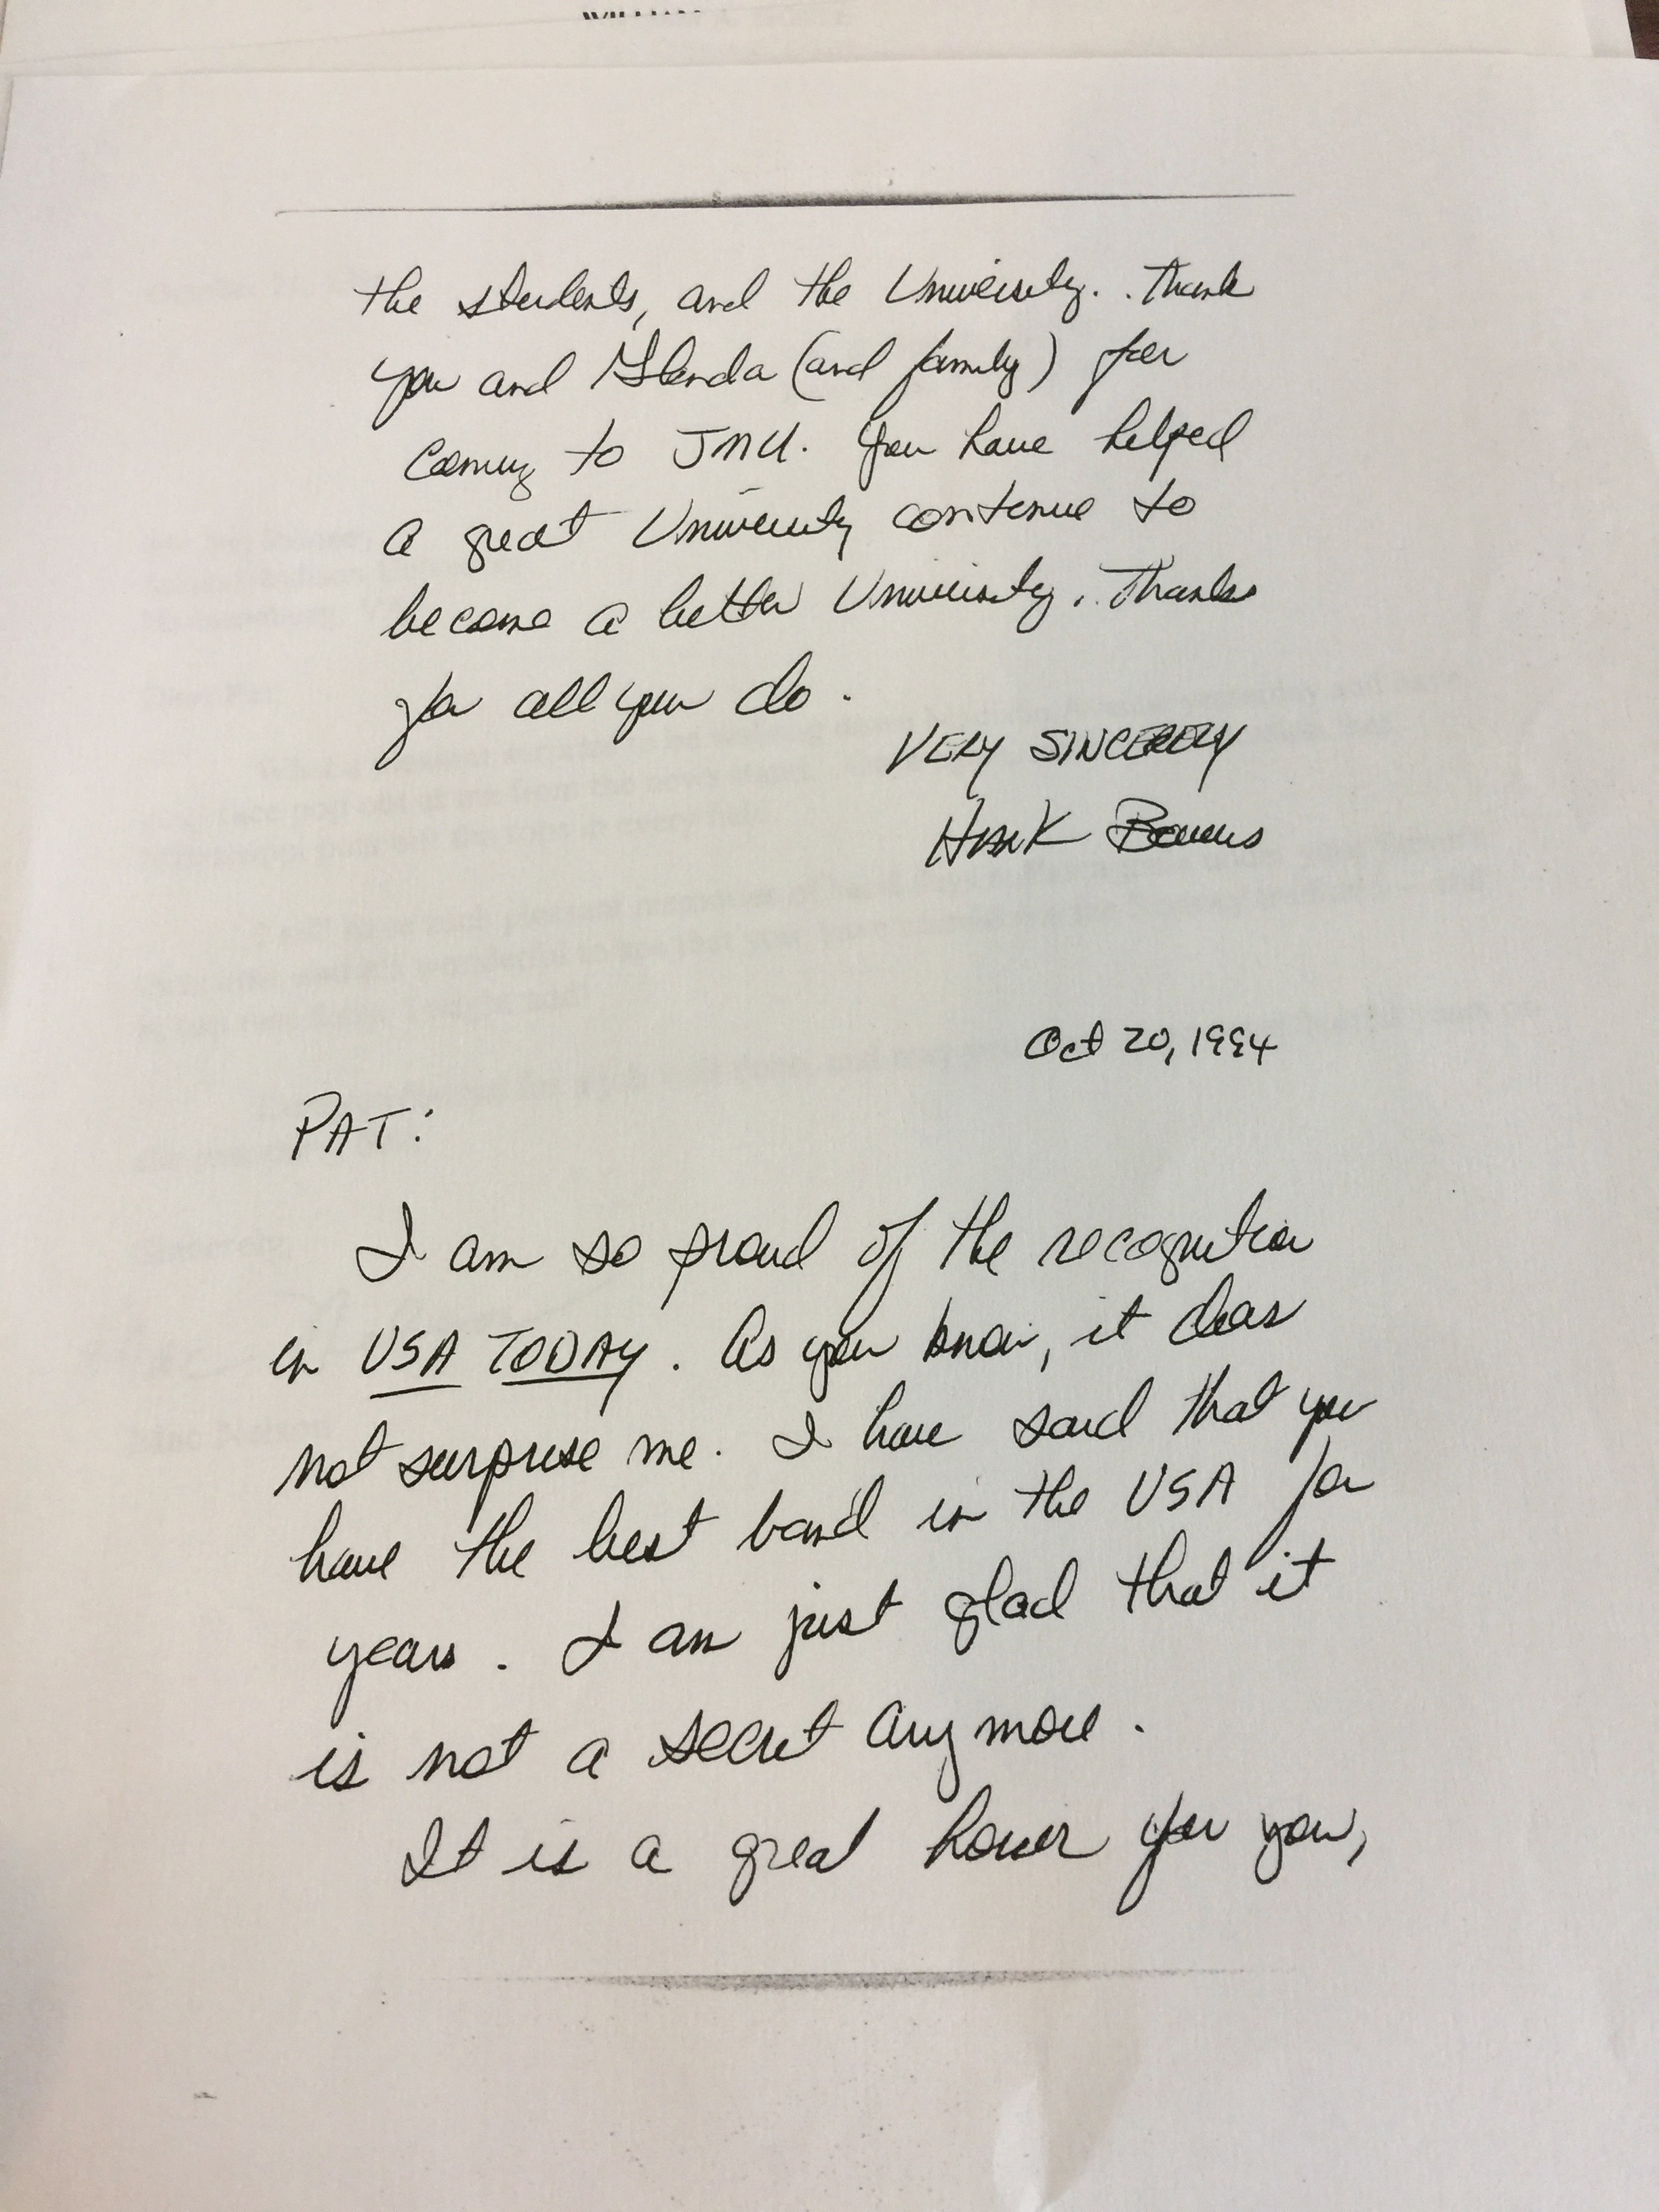 the students, and the University. Thank
you and Glenda (and family) for
coming to JMU. You have helped
a great University continue to
become a better University. Thanks
for all you do.
VERY SINCERELY
Hank Bowers
Oct 20, 1994
PAT:
I am so proud of the recognition
in USA TODAY. As you know, it does
not surprise me. I have said that you
have the best band in the USA for
years. I am just glad that it
is not a secret any more.
It is a great honor for you,